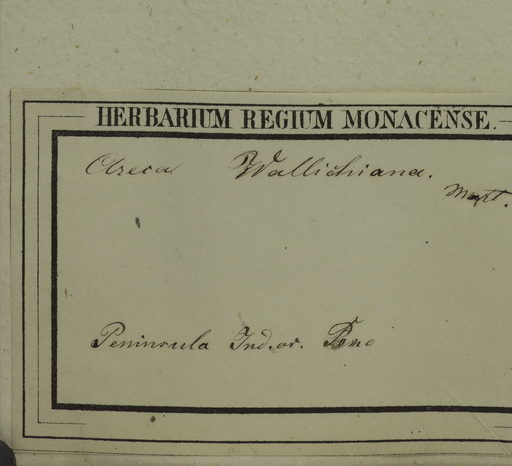 HERBARIUM REGIUM MONACENSE.
Areca Wallichiana.
Mart.
Peninsula Ind. or.